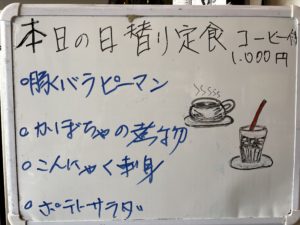 本日の日替り定食 コーヒー付
1.000円
豚バラピーマン
かぼちゃの煮物
こんにゃく刺身
ポテトサラダ